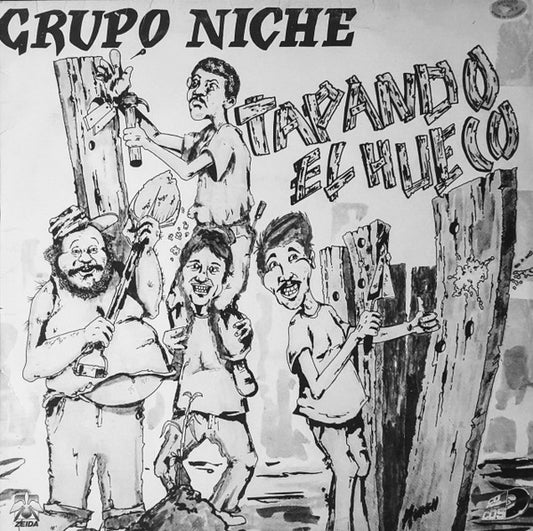 GRUPO NICHE
TAPANDO
EL HUECO
ZEIDA